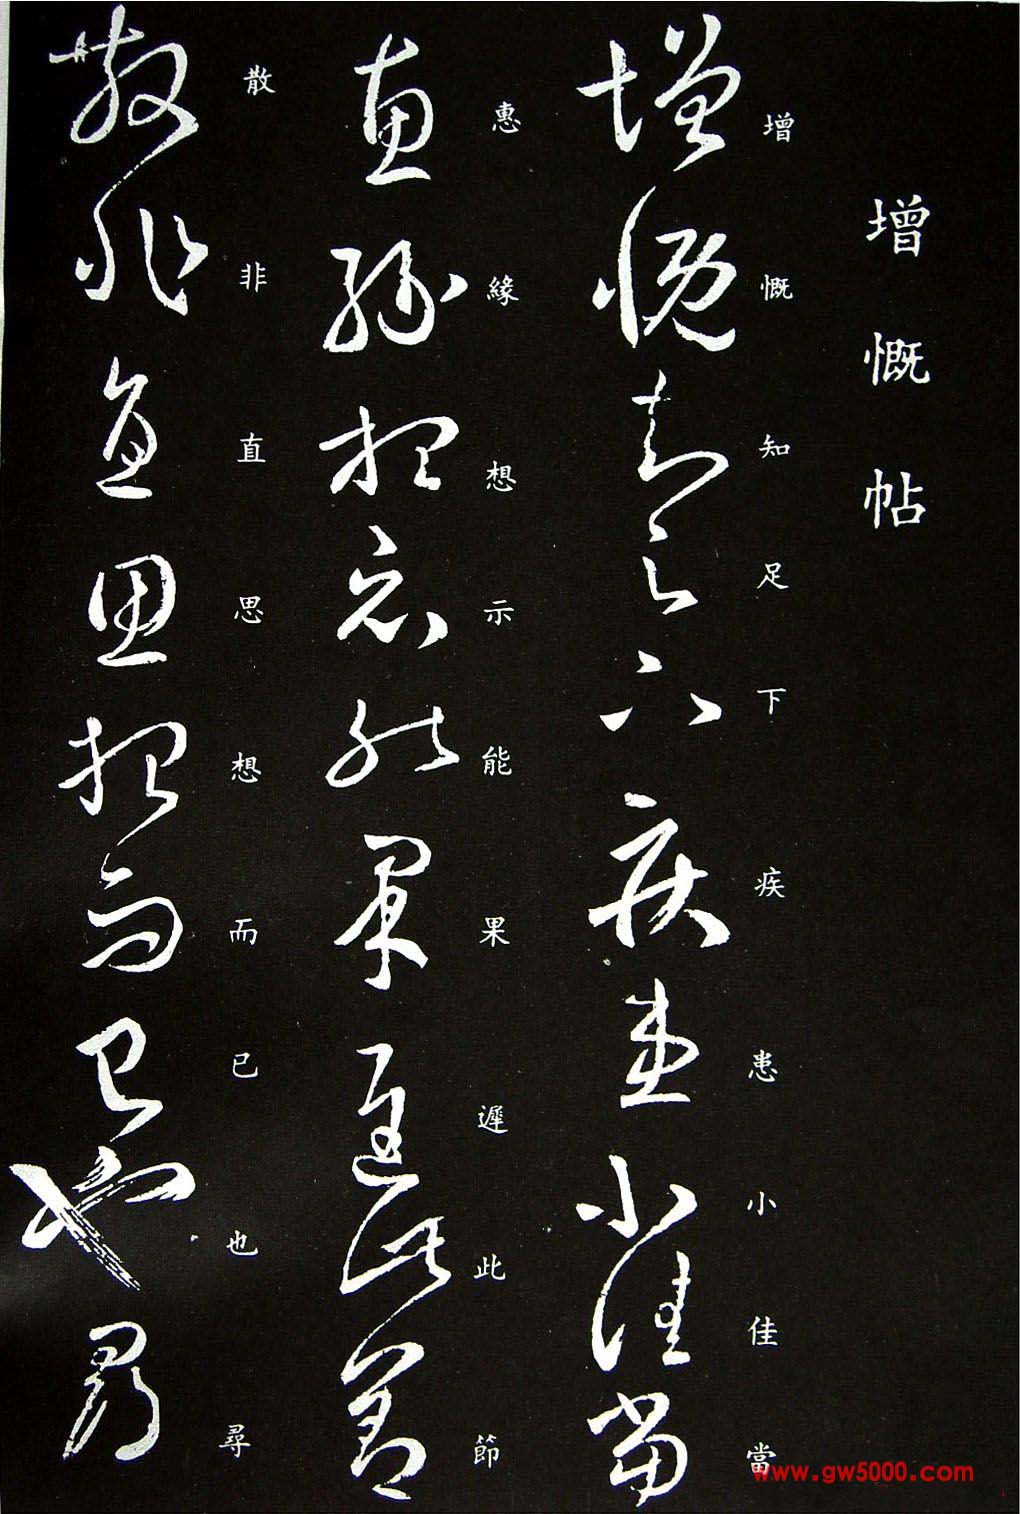 增慨帖
增慨知足下疾患小佳當
惠緣想示能果遲此節
散非直思想而已也尋
www.gw5000.com